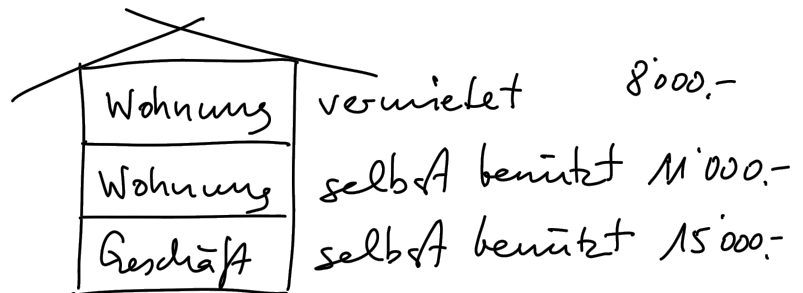 Wohnung vermietet 8'000.-
Wohnung selbst benützt 11'000.-
Geschäft selbst benützt 15'000.-